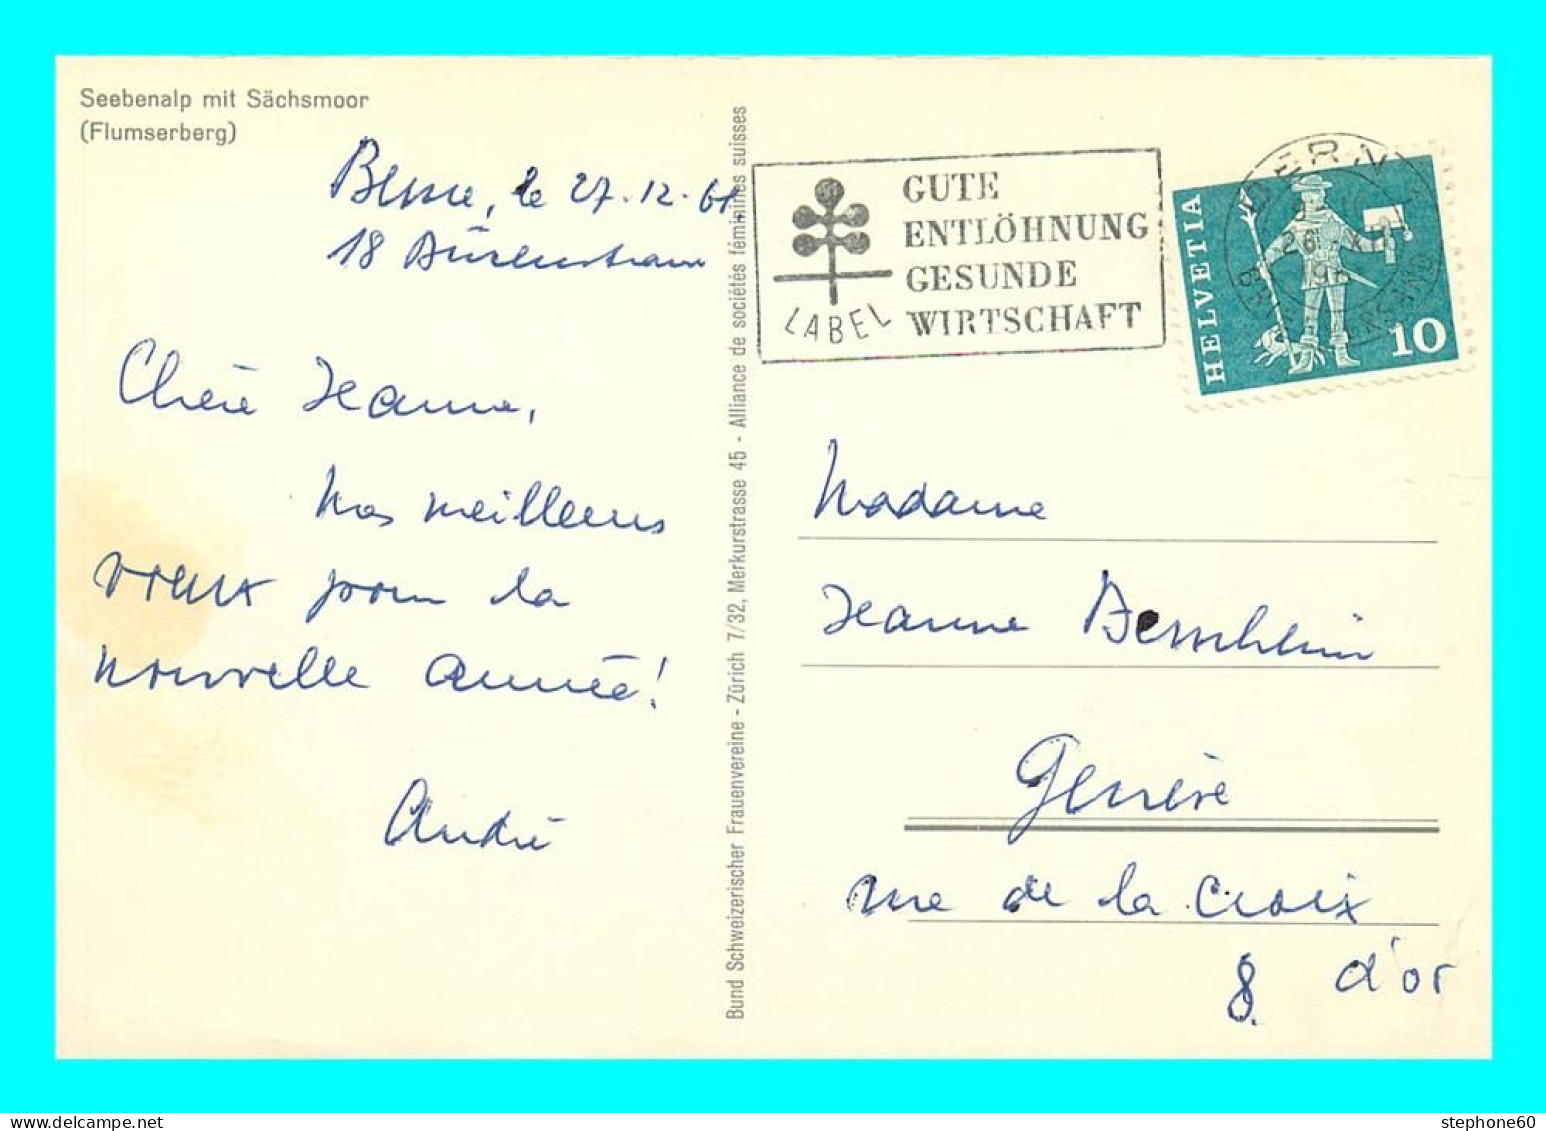 Seebenalp mit Sächsmoor
(Flumserberg)
Berne, le 27.12.61
18
Chère Jeanne,
Nos meilleurs
vœux pour la
nouvelle année!
André
Bund Schweizerischer Frauenvereine - Zürich 7/32, Merkurstrasse 45 - Alliance de sociétés féminines suisses
LABEL
GUTE
ENTLÖHNUNG
GESUNDE
WIRTSCHAFT
BERN
HELVETIA
10
Madame
Jeanne
Genève
rue de la Croix
d'or
8.
stephone60